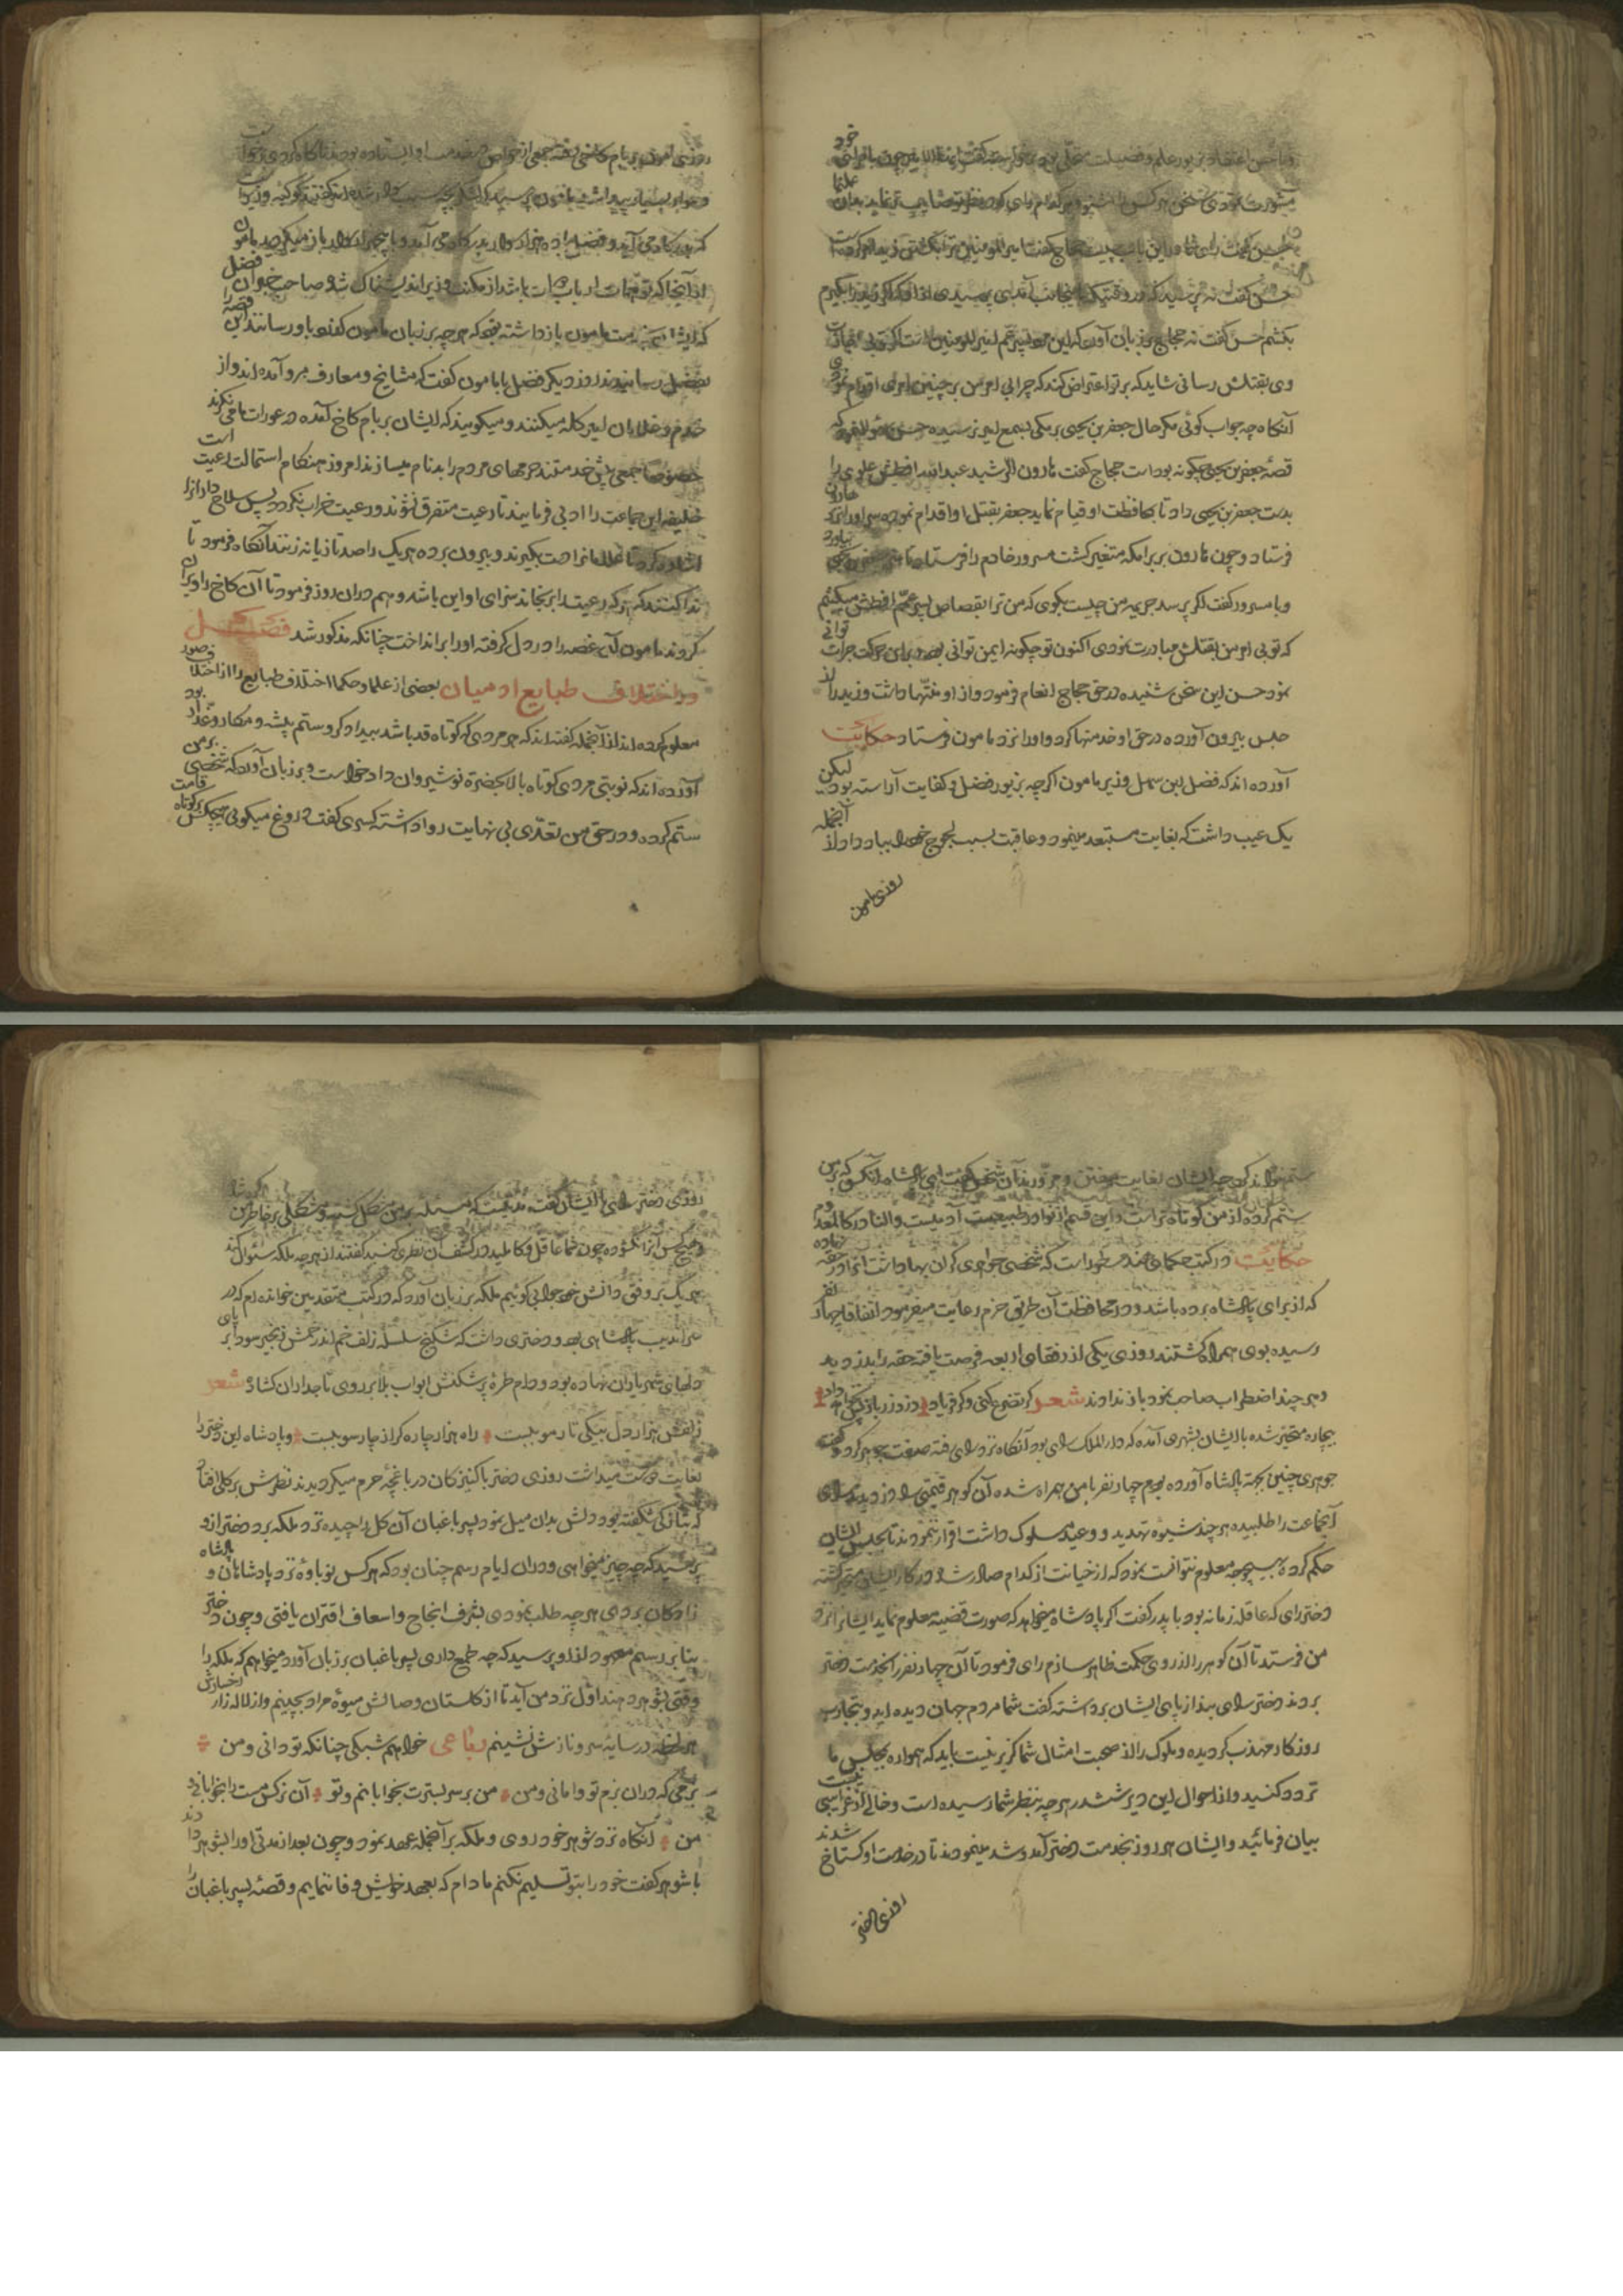 مشورت نمودی سخن هر کس را شنو و هر کدام رای که در نظر تو صایب تر نماید بدان
حسن گفت رای شما در این باب چیست حجاج گفت یا امیر المومنین
حسن گفت نه پرسید که در وقتیکه
بکشم حسن گفت نه حجاج بر زبان آورد که این مرد پسر عم امیر المومنین است اگر تو بی
وی بقتلش رسانی شاید که بر تو اعتراض کند که چرا بی امر من بر چنین امری اقدام نمودی
آنگاه چه جواب گوئی مگر حال جعفر بن یحیی برمکی بسمع امیر نرسیده حسن فرمود که
قصهٔ جعفر بن یحیی چگونه بوداست حجاج گفت هارون الرشید عبدالله افطس علوی را
بدست جعفر بن یحیی داد تا بمحافظت او قیام نماید جعفر بقتل او اقدام نموده سر او را نزد هارون
فرستاد و چون هارون بر برامکه متغیر گشت مسرور خادم را فرستاد تا سر جعفر بیاورد
و با مسرور گفت اگر پرسد جریمه من چیست بگوی که من ترا بقصاص پسر عمم افطس میکشم
که تو بی امر من بقتلش مبادرت نمودی اکنون تو چگونه ایمن توانی بود بر این حرکت جرات توانی
نمود حسن این سخن شنیده در حق حجاج انعام فرمود و از او منتها داشت و زید را از
حبس بیرون آورده در حق او خدمتها کرد و او را نزد مامون فرستاد حکایت
آورده اند که فضل ابن سهل وزیر مامون اگرچه بزیور فضل و کفایت آراسته بود لیکن
یک عیب داشت که بغایت مستبعد مینمود و عاقبت بسبب لجوج خود را بباد داد از آنجمله
روزی مامون
روزی مامون بر بام کاخی رفته جمعی از خواص در خدمت او ایستاده بودند ناگاه گردی
که ایشان بخدمت مامون باز داشته بود که هرچه بر زبان مامون گفته باو رسانند این قصه را
بفضل رسانیدند روز دیگر فضل با مامون گفت که مشایخ و معارف مرو آمده اند و از
خدم و غلامان امیر گله میکنند و میگویند که ایشان بر بام کاخ آمده در عورات ما می نگرند
خصوصا جمعی پیش خدمتند حرمهای مردم را بدنام میسازند امروز هنگام استمالت رعیت است
خلیفه این جماعت را ادبی فرمایند تا رعیت متفرق نشوند و رعیت خراب نکردد پس سلاح دارانرا
اشارت کرد تا غلامانرا دست بگیرند و بیرون برده هریک را صد تازیانه زنند آنگاه فرمود تا
ندا کنند که هرکه رعیت را برنجاند سزای او این باشد و هم دران روز فرمود تا آن کاخ را ویران
کردند مامون آن غصه را در دل گرفته او را برانداخت چنانکه مذکور شد فصل
در اختلاف طبایع ادمیان بعضی از علما و حکما اختلاف طبایع را از اختلاف صور
معلوم کرده اند از آنجمله گفته اند که هر مردی که کوتاه قد باشد بیدادگر و ستم پیشه و مکار و غدار بود
آورده اند که نوبتی مردی کوتاه بالا بحضرة نوشیروان داد خواست و بر زبان آورد که شخصی بر من
ستم کرده و در حق من تعدّی بی نهایت روا داشته کسری گفت دروغ میگوئی هیچکس بر کوتاه قامت
ستم نتواند کرد چه ایشان بغایت پر فتن و مزورند آن شخص گفت ای پادشاه آنکس که بر من
ستم کرده از من کوتاه تر است و این قسم از نوادر طبیعت آدمیست و النادر کالمعدوم
حکایت در کتب حکمای هند مسطور است که شخصی جواهری گران بها داشت آنرا در حقه نهاده
که از برای پادشاه برده باشد و در محافظت آن طریق حزم رعایت میفرمود اتفاقا چهار نفر
رسیده بوی همراه گشتند روزی یکی از رفقای اربعه فرصت یافته حقه را بدزدید
و هر چند اضطراب صاحب نمود باز نداوند شعر گر تضرع کنی و گر فریاد دزد زر باز پس نخواهد داد
بیچاره متحیر شده با ایشان بشهری آمده که دارالملک رای بود آنگاه نزد رای رفته صفت جوهر کرد و گفت
جوهری چنین بجهة پادشاه آورده بودم چهار نفر با من همراه شده آن گوهر قیمتی را دزدیدند رای
آنجماعت را طلبیده هر چند شیوه تهدید و وعید مسلوک داشت اقرار ننمودند تا بحبس ایشان
حکم کرده بهیچوجه معلوم نتوانست نمود که از خیانت از کدام صادر شد و در کار ایشان متحیر گشته
دختر رای که عاقلهٔ زمانه بود با پدر گفت اگر پادشاه میخواهد که صورت قضیه معلوم نماید ایشانرا نزد
من فرستد تا آن گوهر را از روی حکمت ظاهر سازم رای فرمود تا آن چهار نفر را بخدمت دختر
بردند دختر رای بند از پای ایشان برداشته گفت شما مردم جهان دیده اید و بتجارب
روزگار مهذب گردیده و ملوک را از صحبت امثال شما گزیر نیست باید که همواره بمجلس ما
تردد کنید و از احوال این دیر ششدر هرچه بنظر شما رسیده است و خالی از غرایبی نیست
بیان فرمائید و ایشان هر روز بخدمت دختر آمد و شد مینمودند تا در خدمت او گستاخ شدند
روزی دختر
روزی دختر رای با ایشان گفت
و هیچکس آنرا نگشوده چون شما عاقل و کاملید در کشف آن نظری کنید گفتند از هرچه ملکه سئوال کند
هریک بر وفق دانش خود جوابی گوئیم ملکه بر زبان آورد که در کتب متقدمین خوانده ام که در
سراندیب پادشاهی بود و دختری داشت که شکنج سلسلهٔ زلف خم اندر خمش زنجیر سودا بر پای
دلهای شهریاران نهاده بود و دام طرهٔ پر شکنش ابواب بلا بر روی تاجداران گشاده شعر
زلفش هزار دل بیکی تار مو ببست راه هزار چاره گر از چار سو ببست و پادشاه این دختر را
بغایت دوست میداشت روزی دختر با کنیزکان در باغچهٔ حرم میگردیدند نظرش بر گلی افتاد
که تازگی شگفته بود دلش بدان میل نمود پسر باغبان آن گل را چیده نزد ملکه برد دختر ازو
پرسید که چه چیز میخواهی و دران ایام رسم چنان بود که هرکس نوباوهٔ نزد پادشاهان و پادشاه
زادگان بردی هرچه طلب نمودی بشرف انجاح و اسعاف اقتران یافتی و چون دختر
بنا بر رسم معهود از او پرسید که چه طمع داری پسر باغبان بر زبان آورد میخواهم که ملکه را
وقتی بشوهر دهند اول نزد من آید تا از گلستان وصالش میوهٔ مراد بچینم و از لاله زار رخسارش
هر لحظه در سایهٔ سرو نازش نشینم رباعی خواهم شبکی چنانکه تو دانی و من
بزمی که دران بزم تو وامانی و من من بر سر بسترت بخوابانم و تو آن نرگس مست را بخوابانی و
من آنگاه نزد شوهر خود روی و ملکه بر آنجمله عهد نمود و چون بعد از مدتی او را بشوهر دادند
با شوهر گفت خود را بتو تسلیم نکنم مادام که بعهد خویش وفا ننمایم و قصهٔ پسر باغبان را